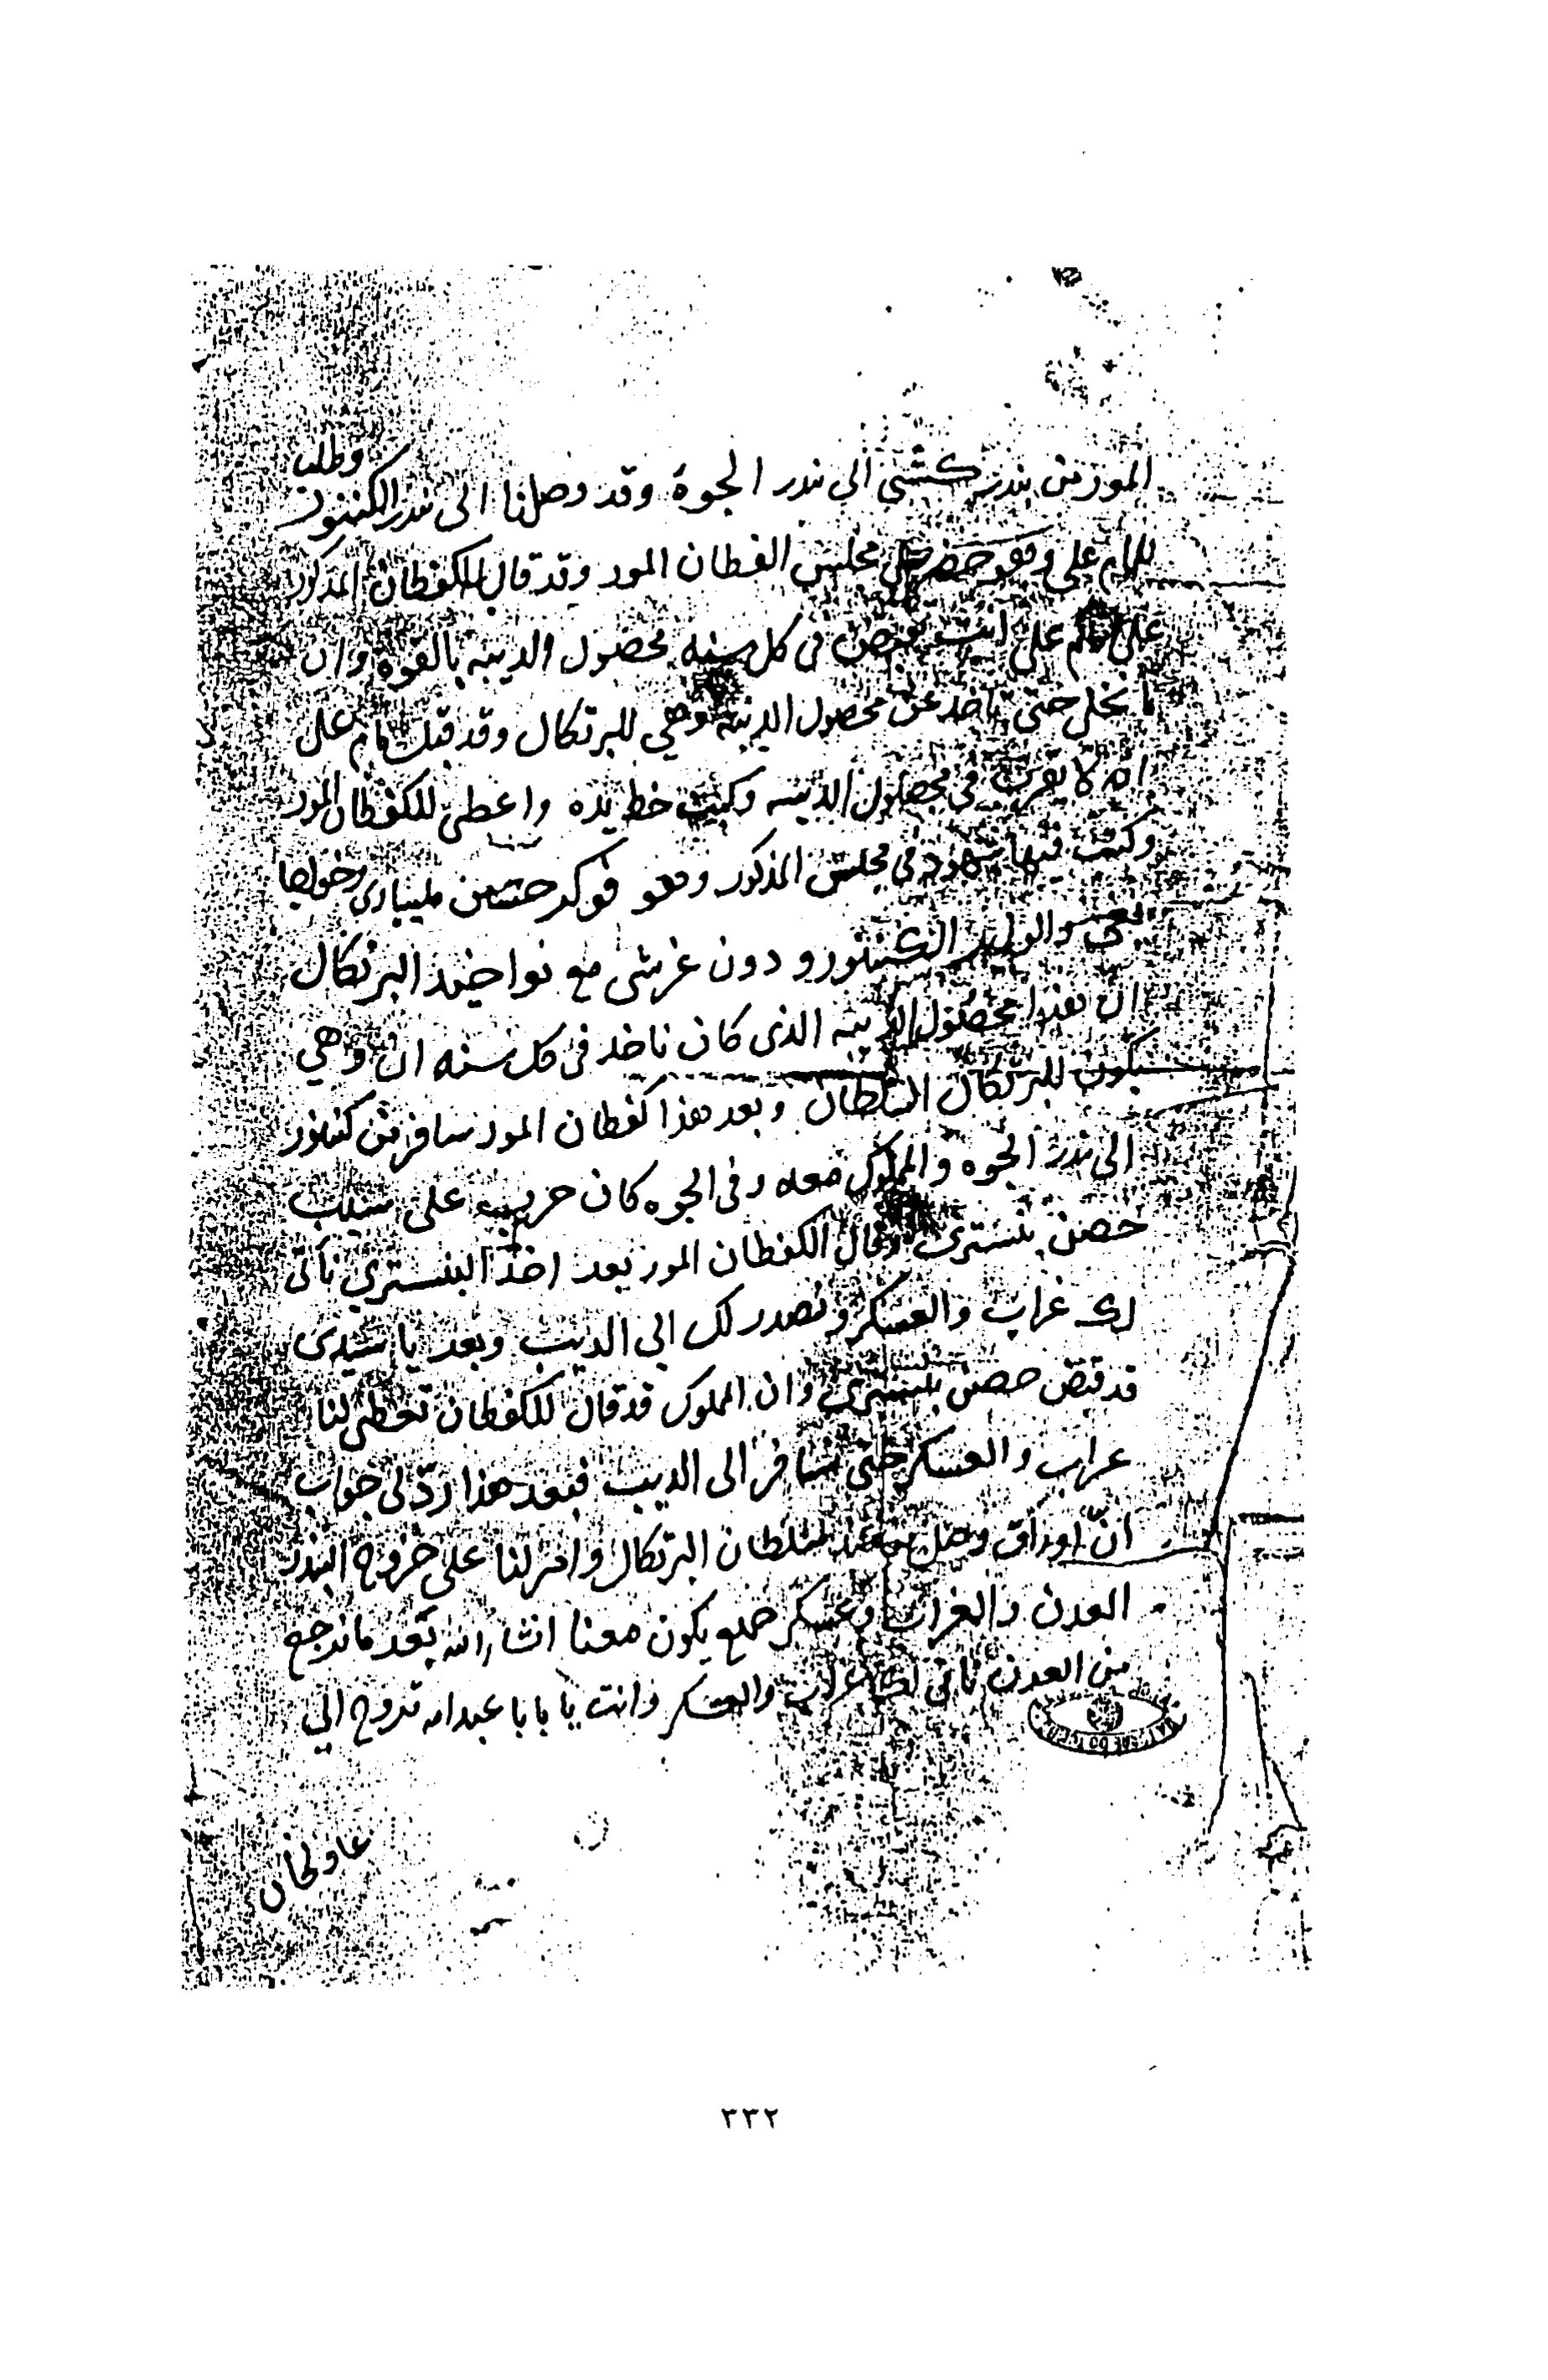 المور من بندر كشي الي بندر الجوة وقد وصلنا الى بندر الكننور وطلب
للمام علي وهو حضر على مجلس القطان المور وقد قال للكفطان المذكور
على مام علي انت تقبض في كل سنه محصول الديبه بالقوة وان
ما نخلي حتى تاخذ عن محصول الديبه وهي للبرتكال وقد قبل مام علي
انه لا يقرب في محصول الديبه وكتب خط يده واعطى للكفطان المور
وكتب فيها شهود في مجلس المذكور وهو فوكر حسن مليباري
والوزير الكننور ودون غرشي مع نواخيذ البرتكال
ان هذا محصول الديبه الذى كان ناخذ في كل سنه ان وهي
يكون للبرتكال السلطان وبعد هذا كفطان المور سافر من كننور
الى بندر الجوه والمملوك معه وفى الجوه كان حربه على سبب
حصن بنستري وقال الكفطان المور بعد اخذ البنستري ناتى
لك غراب والعسكر ونصدر لك الى الديب وبعد يا سيدى
قد قبض حصن بنستري وان المملوك قد قال للكفطان تعطي لنا
غراب والعسكر حتى نسافر الى الديب فبعد هذا ردّ لى جواب
انّ اوراق وصل من عند سلطان البرتكال وامر لنا على خروج البندر
العدن والغراب وعسكر جميع يكون معنا انشاء الله بعد ما نرجع
من العدن ناتى لك غراب والعسكر وانت يا بابا عبد الله تروح الي
٣٣٢